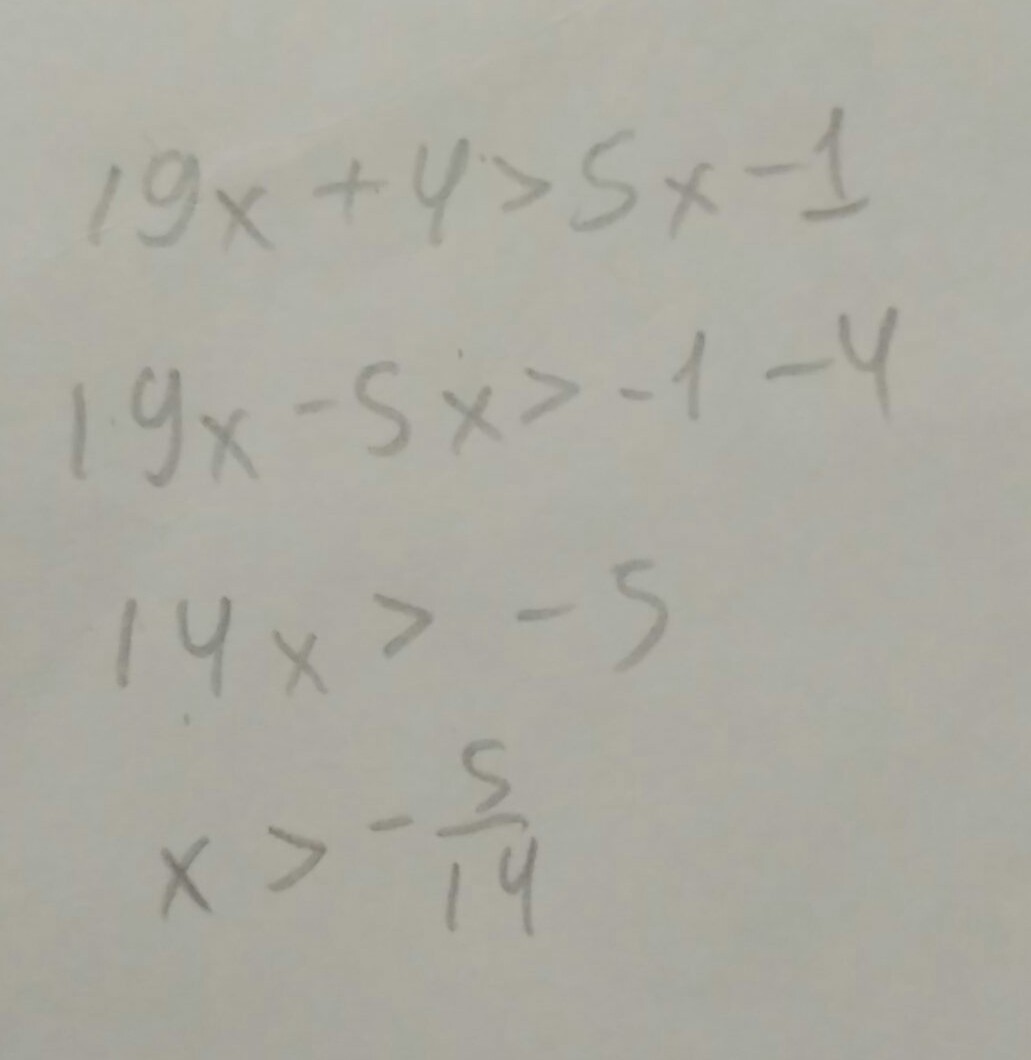 19x + 4 > 5x - 1
19x - 5x > -1 - 4
14x > -5
x > -5/14